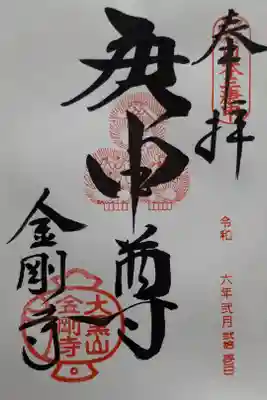 奉拝
庚申尊
金剛寺
大黒山
金剛寺
令和 六年 弐月 弐拾壱日